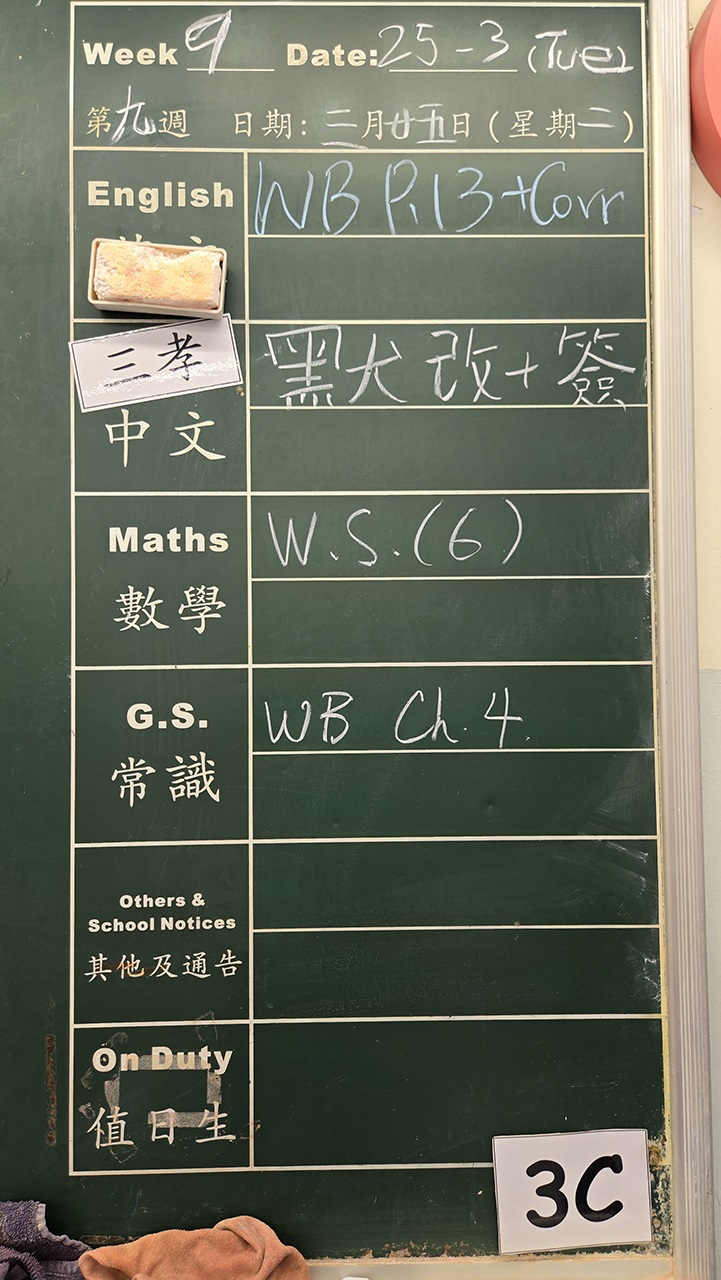 Week 9 Date: 25-3 (Tue)
第九週 日期: 三月廿五日 (星期二)
English WB P.13 + Corr
三孝 黑犬 改 + 簽
中文
Maths W.S. (6)
數學
G.S. WB Ch. 4
常識
Others &
School Notices
其他及通告
On Duty
值日生
3C